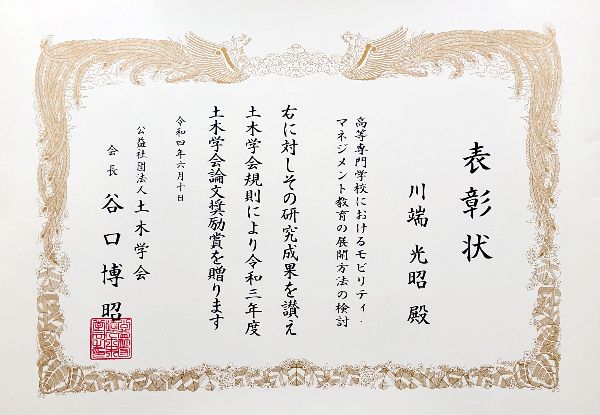 表彰状
川端 光昭 殿
高等専門学校におけるモビリティ・
マネジメント教育の展開方法の検討
右に対しその研究成果を讃え
土木学会規則により令和三年度
土木学会論文奨励賞を贈ります
令和四年六月十日
公益社団法人 土木学会
会長 谷口博昭